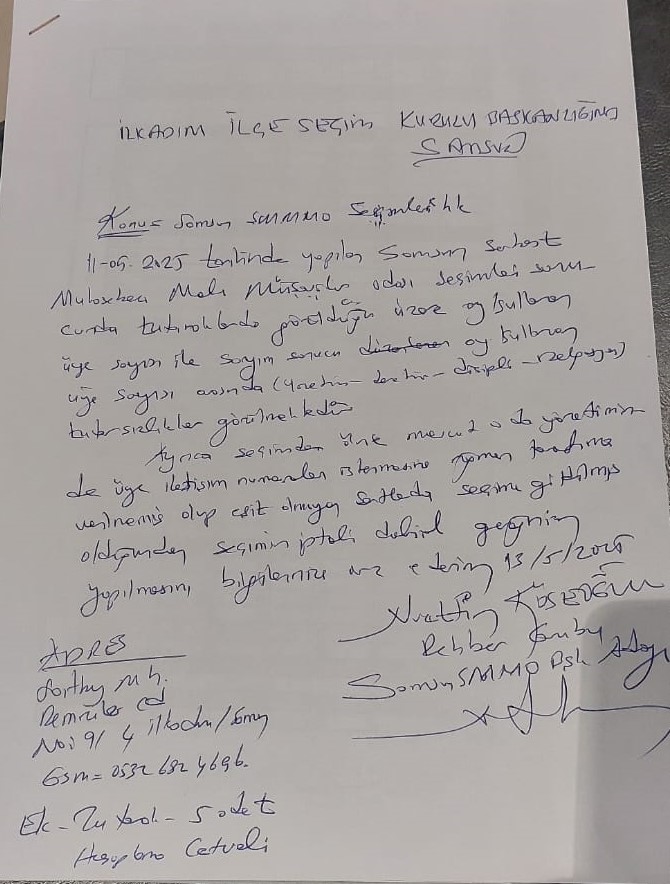 İLKADIM İLÇE SEÇİM KURULU BAŞKANLIĞINA
SAMSUN
Konu= Samsun SMMMO Seçimleri hk
11-05-2025 tarihinde yapılan Samsun Serbest
Muhasebeci Mali Müşavirler odası seçimleri sonu-
cunda tutanaklarda görüldüğü üzere oy kullanan
üye sayısı ile sayım sonucu oy kullanan
üye sayısı arasında (yönetim - denetim - disiplin - )
tutarsızlıklar görülmektedir
Ayrıca seçimden önce mevcut oda yönetimin-
de üye iletişim numaraları istenmesine rağmen tarafıma
verilmemiş olup eşit olmayan şartlarda seçime gidilmiş
olduğundan seçimin iptali dahil gereğinin
yapılmasını bilgilerinize arz ederim 13/5/2025
KÖSEOĞLU
Rehber Grubu
Samsun SMMMO Bşk Adayı
ADRES
mh.
cd
No: 9/4 ilkadım/Samsun
Gsm= 0532 682 4696.
Ek- Tutanak - 5 adet
Hesaplama Cetveli